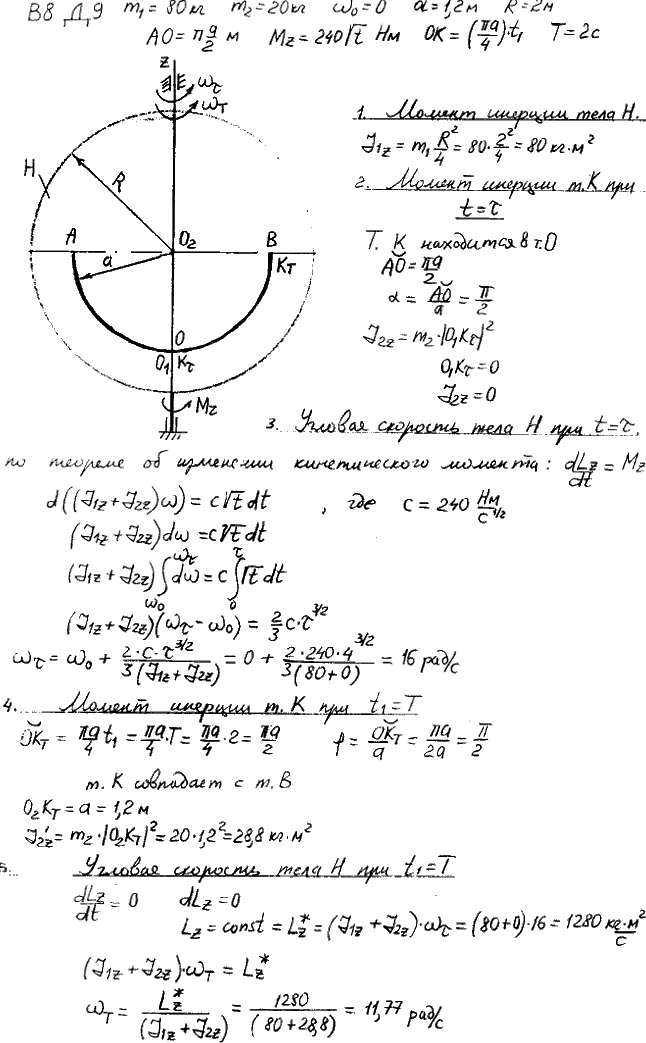 В8 Д9 m₁ = 80 кг m₂ = 20 кг ω₀ = 0 a = 1,2 м R = 2 м
AO = π a/2 м Mz = 240√t Нм OK = (πa/4)·t₁ T = 2c
z
E ωτ
ωT
H
R
A O₂ B
a KT
O
O₁ Kτ
Mz
1. Момент инерции тела H.
J1z = m₁ R²/4 = 80·2²/4 = 80 кг·м²
2. Момент инерции т.K при
t = τ
Т. K находится в т.O
AO = πa/2
α = AO/a = π/2
J2z = m₂·|O₁Kτ|²
O₁Kτ = 0
J2z = 0
3. Угловая скорость тела H при t = τ.
по теореме об измением кинетического момента: dLz/dt = Mz
d((J1z + J2z)ω) = c√t dt , где c = 240 Нм/c^1/2
(J1z + J2z)dω = c√t dt
(J1z + J2z) ∫ω₀^ωτ dω = c ∫0^τ √t dt
(J1z + J2z)(ωτ − ω₀) = 2/3 c·τ^3/2
ωτ = ω₀ + 2·c·τ^3/2 / 3(J1z + J2z) = 0 + 2·240·4^3/2 / 3(80+0) = 16 рад/с
4. Момент инерции т. K при t₁ = T
OKT = πa/4 t₁ = πa/4·T = πa/4·2 = πa/2 f = OKT/a = πa/2a = π/2
т. K совпадает с т. B
O₂KT = a = 1,2 м
J2z' = m₂·|O₂KT|² = 20·1,2² = 28,8 кг·м²
5. Угловая скорость тела H при t₁ = T
dLz/dt = 0 dLz = 0
Lz = const = Lz* = (J1z + J2z)·ωτ = (80+0)·16 = 1280 кг·м²/с
(J1z + J2z)·ωT = Lz*
ωT = Lz*/(J1z + J2z) = 1280/(80 + 28,8) = 11,77 рад/с